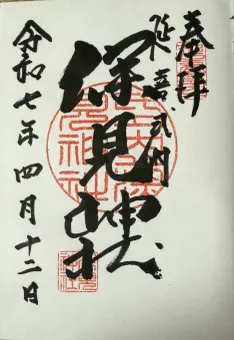 奉拝
延喜式内
保見神社
令和七年四月十二日